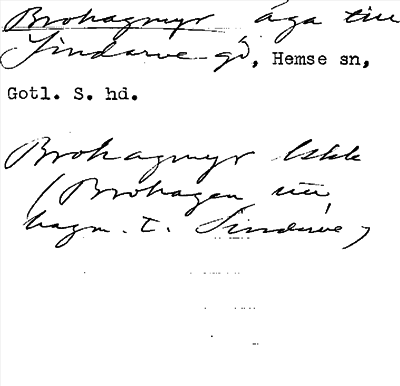 Brohagmyr äga till
Sindarve gd, Hemse sn,
Gotl. S. hd.
Brohagmyr Uskk
(Brohagen nu
hagm. t. Sindarve)